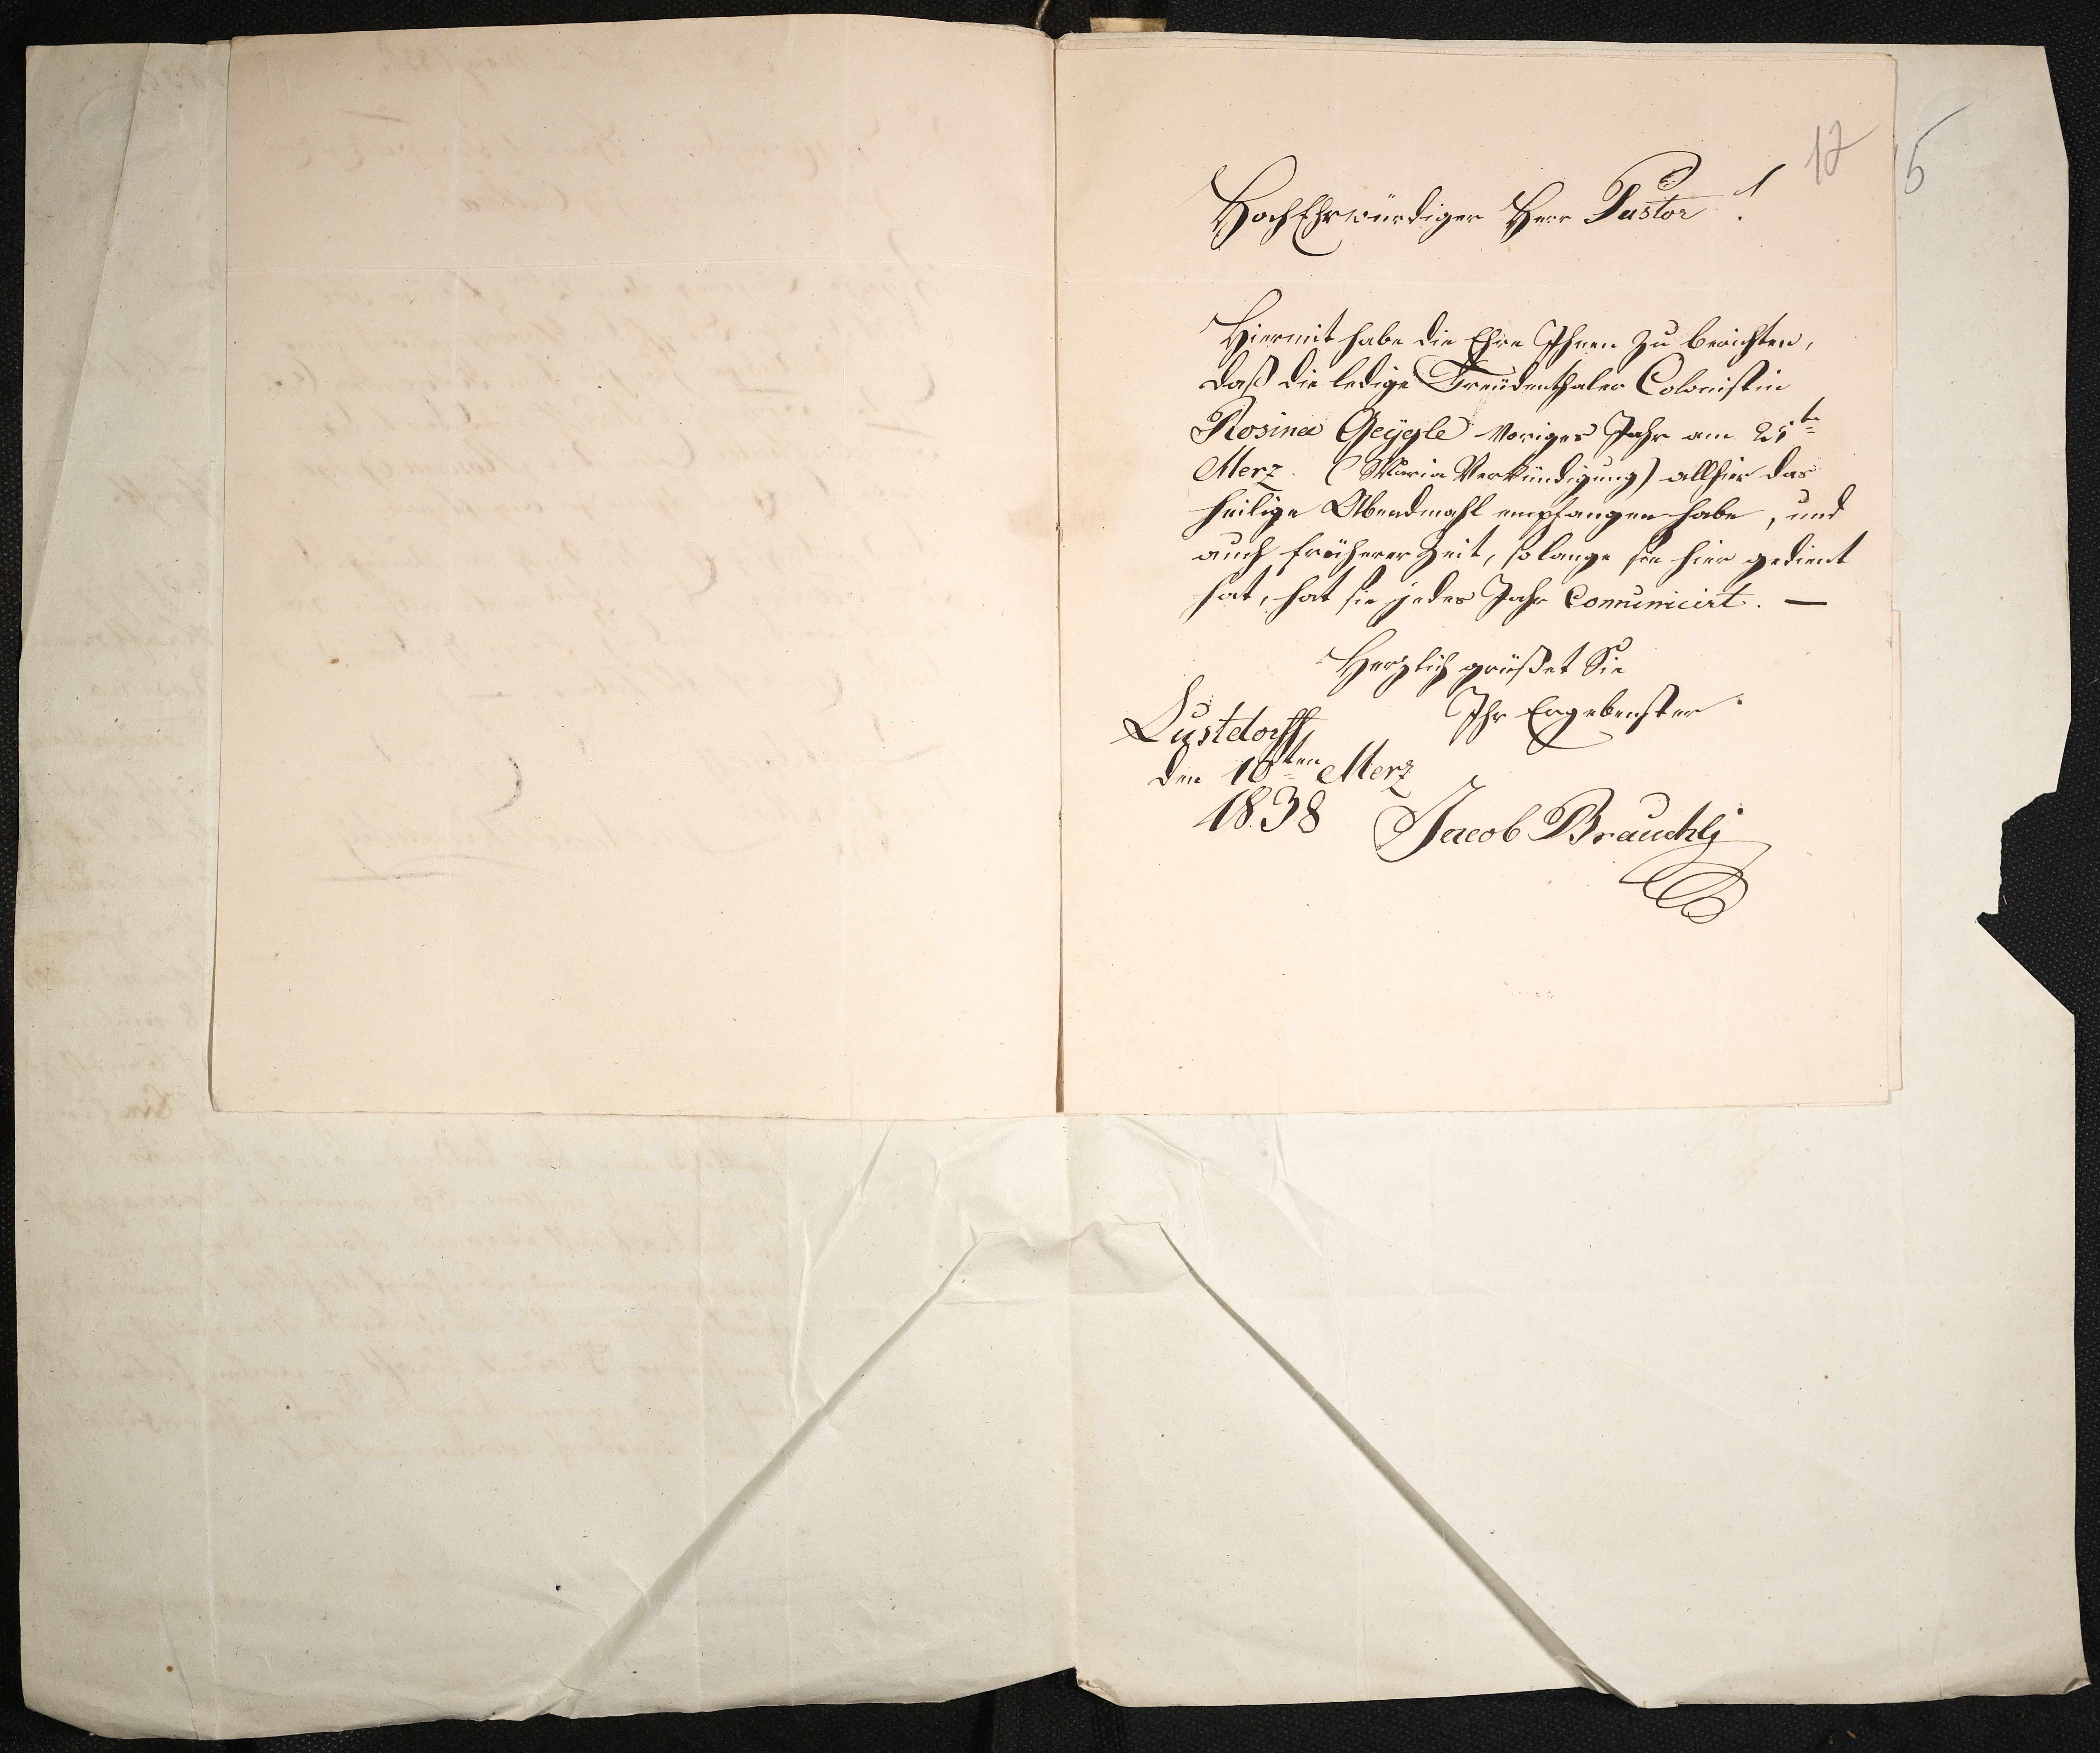 12
5
HochEhrwürdiger Herr Pastor!
Hiermit habe die Ehre Ihnen zu berichten,
daß die ledige Freüdenthaler Colonistin
Rosina Geÿgle voriges Jahr am 25te
Merz. (Maria Verkündigung) allhier das
heilige Abendmahl empfangen habe, und
auch früherer Zeit, solange sie hier gedient
hat, hat sie jedes Jahr Comunicirt. —
Herzlich grüßet Sie
Ihr Ergebenster
Lustdorff,
den 10ten Merz
1838
Jacob Brauchli